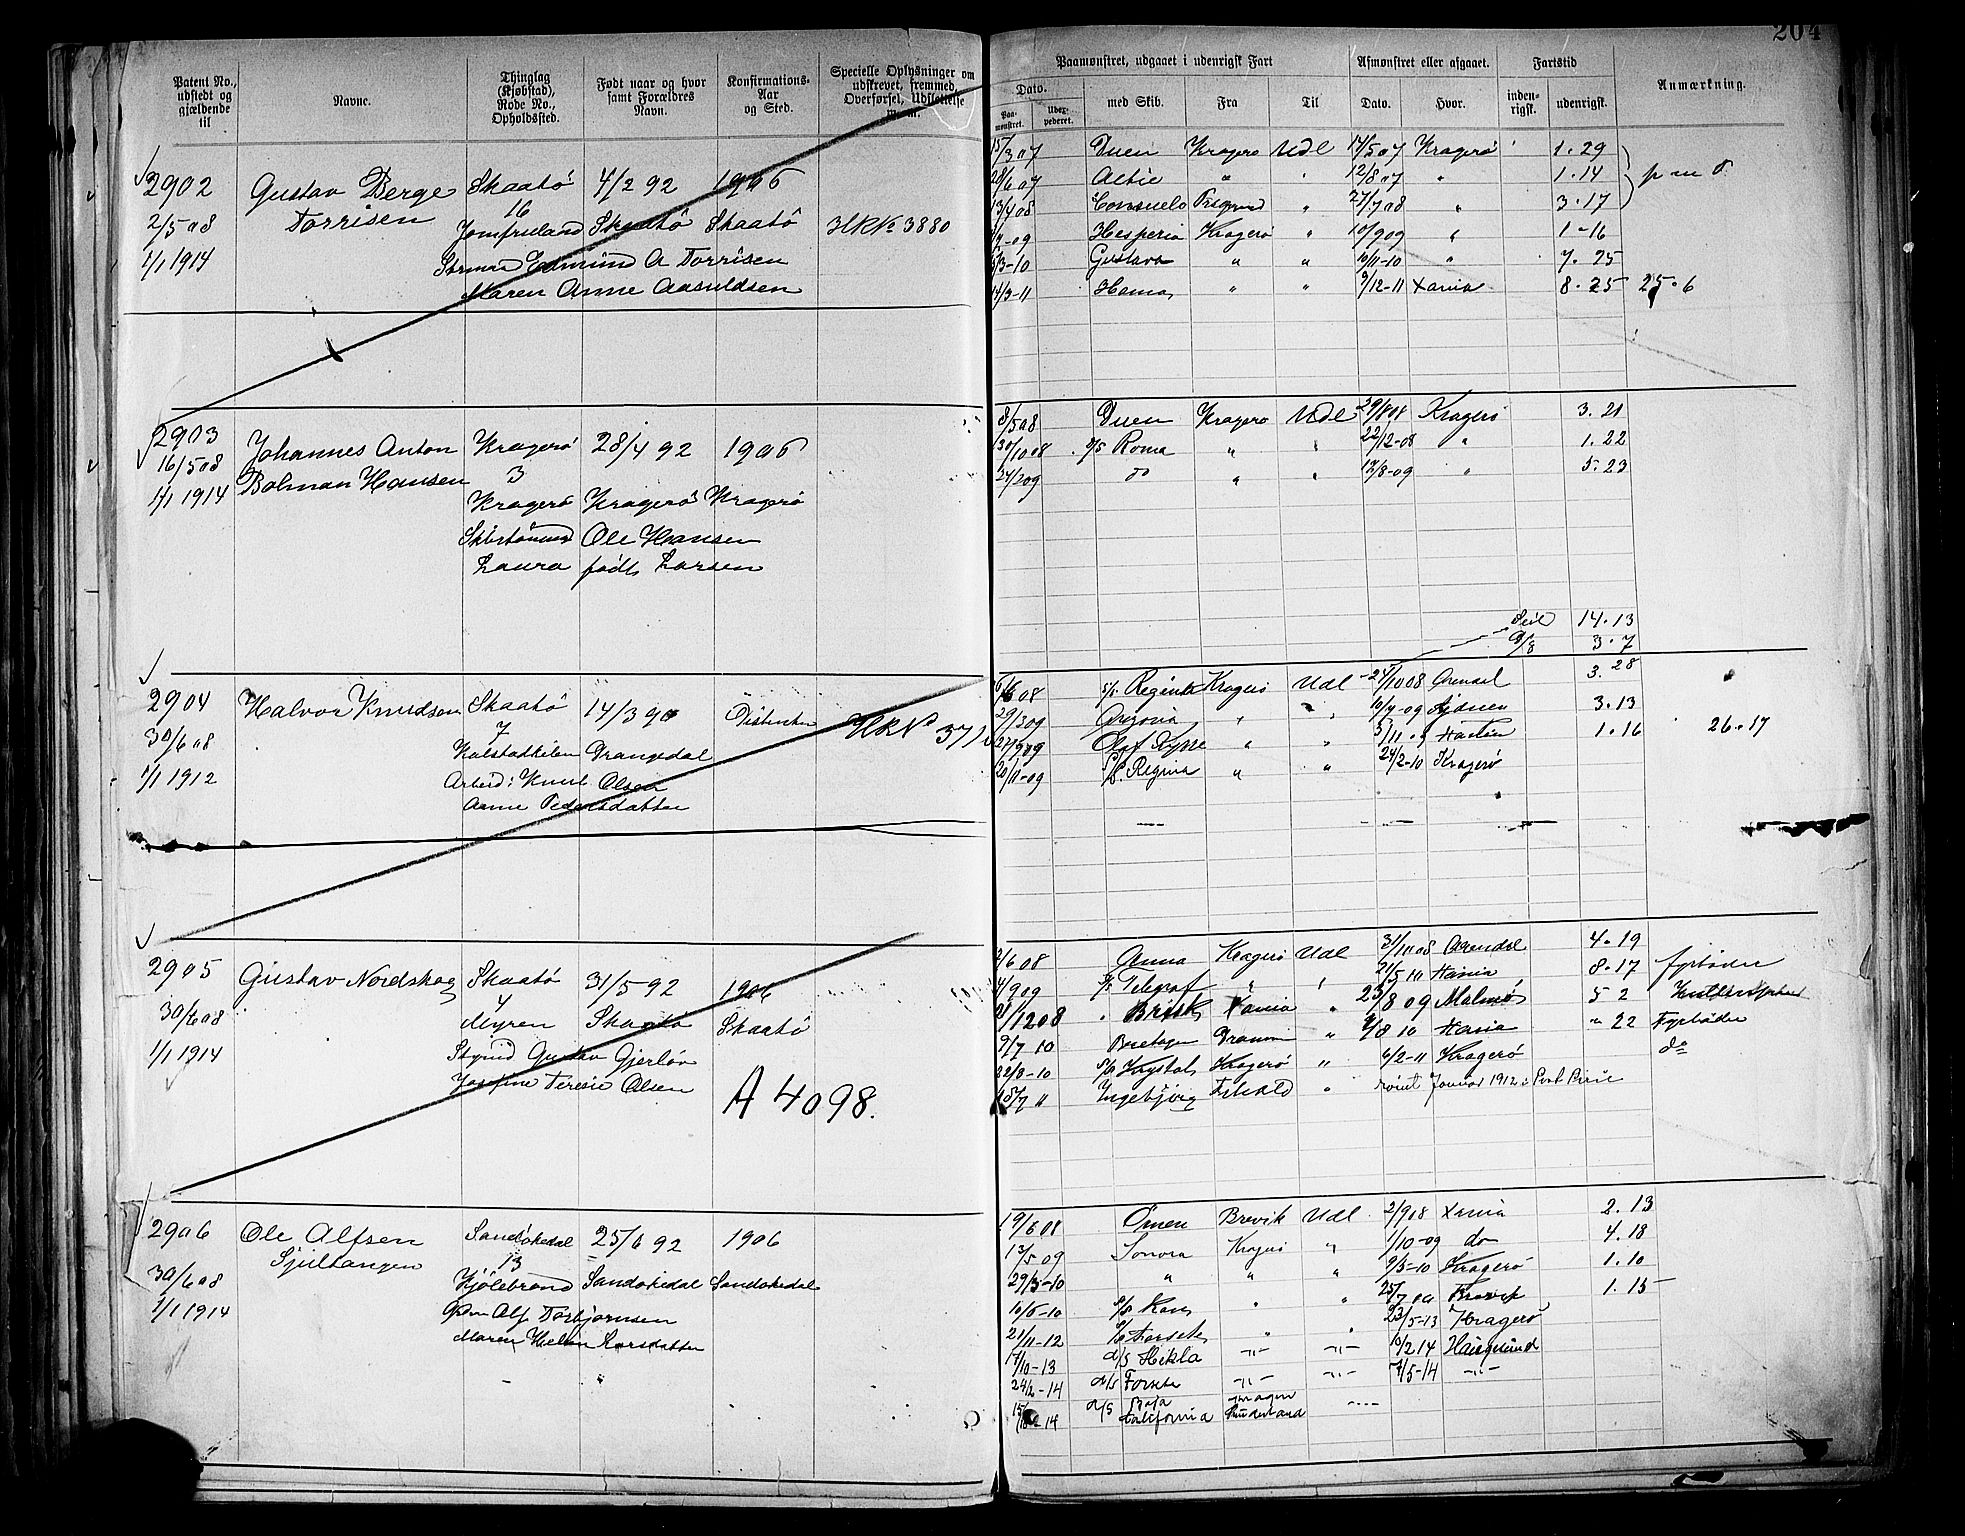 204
Patent No., udstedt og gjældende til
Navne.
Thinglag (Kjøbstad), Rode No., Opholdssted.
Født naar og hvor samt Forældres Navn.
Konfirmations-Aar og Sted.
Specielle Oplysninger om udskrevet, fremmed, Overførsel, Udslettelse m. m.
Paamønstret, udgaaet i udenrigsk Fart
Dato.
Paa-mønstret.
Uder-pederet.
med Skib.
Fra
Til
Afmønstret eller afgaaet.
Dato.
Hvor.
Fartstid
inden-rigsk.
udenrigsk.
Anmærkning.
2902 Gustav Berge Skaatö 4/2 92 1906
Torrisen 16
2/5 08 Jomfruland Skaatö Skaatö HkNo 3880
1/1 1914 Edmund A Torrisen
Maren Anne Aasuldsen
15/3 07 Duen Kragerö Udl 14/5 07 Kragerö 1.29
28/6 07 Altie " " 12/8 07 " 1.14
13/4 08 Consuelo " 27/7 08 " 3.17
Hesperia Kragerö " 10/9 09 " 1-16
5/3-10 Gustava " " 10/11-10 " 7.25
14/3-11 Hama " " 9/12-11 Xania 8.25 25.6
2903 Johannes Anton Kragerö 28/4 92 1906
16/5 08 Bolman Hansen 3
1/1 1914 Kragerö Kragerö Kragerö
Ole Hansen
Laura født Larsen
8/5 08 Duen Kragerö Udl 29/8 08 Kragerö 3.21
30/10 08 S/S Roma " " 22/12-08 " 1.22
24/2 09 do " " 12/8-09 " 5.23
Seil 14.13
D/S 3.7
2904 Halvor Knudsen Skaatö 14/3 90
7 HkNo
30/6 08 Kalstadkilen Drangedal
1/1 1912 Arbeid: Knut Olsen
Anne Pedersdatter
08 S/S Regina Kragerö Udl 24/10 08 Arendal 3.28
29/3 09 " " 10/7-09 3.13
27/9 09 Olaf Kyrre " " 3/11 09 1.16 26.17
20/11-09 S/S Regina " " 24/2-10 Kragerö
2905 Gustav Nordskog Skaatö 31/5 92 1906
4
30/6 08 Myren Skaatö Skaatö
1/1 1914 Gustav Gjerløv
Josefine Teresie Olsen
A 4098.
2/6 08 Anna Kragerö Udl 31/10 08 Arendal 4.19
4/9 09 S/S Telegraf " " 21/5 10 Xania 8.17 fyrbøder
1/12 08 " Brisk Xania " 23/8 09 Malmö 5 2
9/7 10 Bretagne Dramm " 9/8 10 Xania " 22 Fyrbøder
22/8-10 S/S Krystal Kragerö " 6/2-11 Kragerö do
15/7 11 Ingebjörg " rømt Januar 1912 i Port Pirie
2906 Ole Alfsen Sandökedal 25/6 92 1906
Sjultangen 13
30/6 08 Kjölebrond Sandökedal Sandökedal
1/1 1914 Alf Torbjörnsen
Maren Helene Larsdatter
19/6 08 Ørnen Brevik Udl 2/9 08 Xania 2.13
13/5 09 Sonora Kragerö " 1/10-09 do 4.18
29/3-10 " " " 9/5-10 Kragerö 1.10
10/6-10 S/S Kong " " 25/7 10 Brevik 1.15
21/11-12 S/S Forsete " " 23/5-13 Kragerö
14/10-13 D/S Hekla -"- -"- 10/2 14 Haugesund
24/2-14 D/S Forsete -"- -"- 7/5-14 -"-
15/ 14 D/S California Sunderland